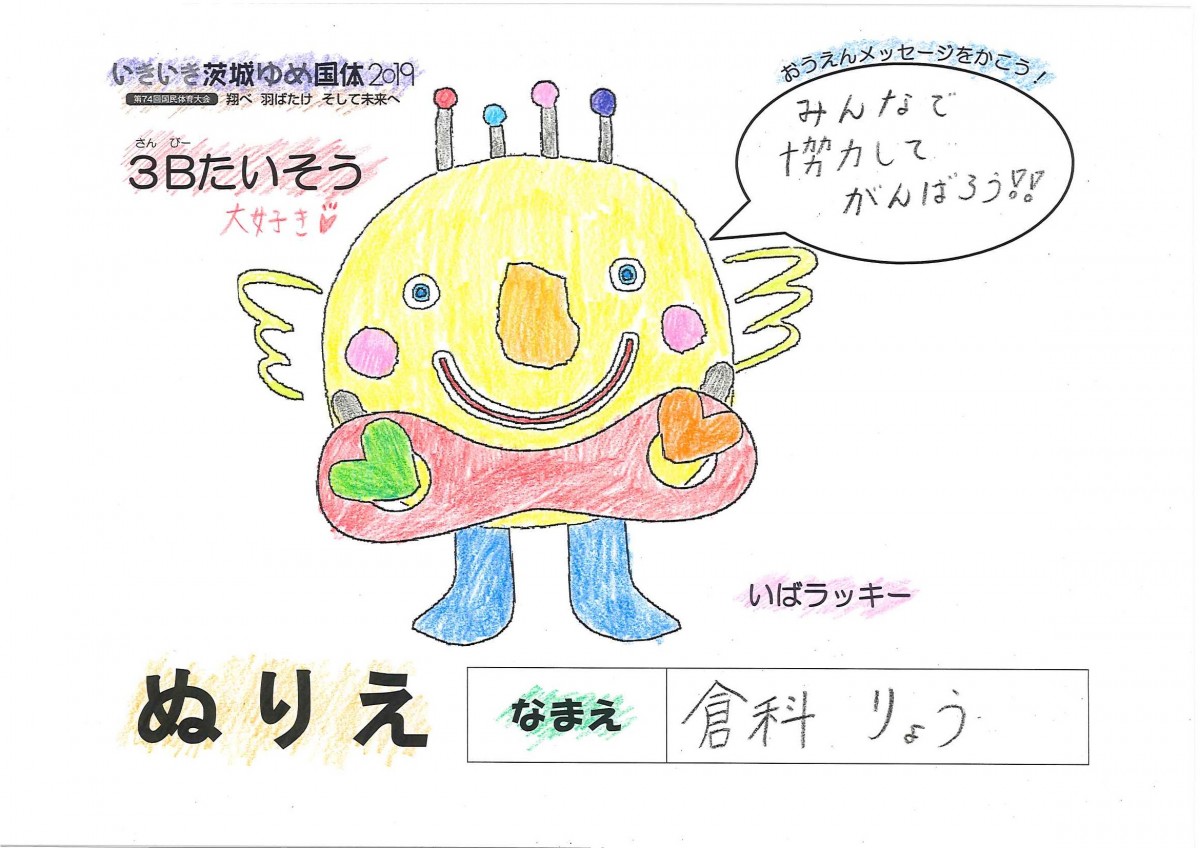 いきいき茨城ゆめ国体2019
第74回国民体育大会 翔べ 羽ばたけ そして未来へ
さん びー
3Bたいそう
大好き
おうえんメッセージをかこう!
みんなで
協力して
がんばろう!!
いばラッキー
ぬりえ
なまえ 倉科 りょう